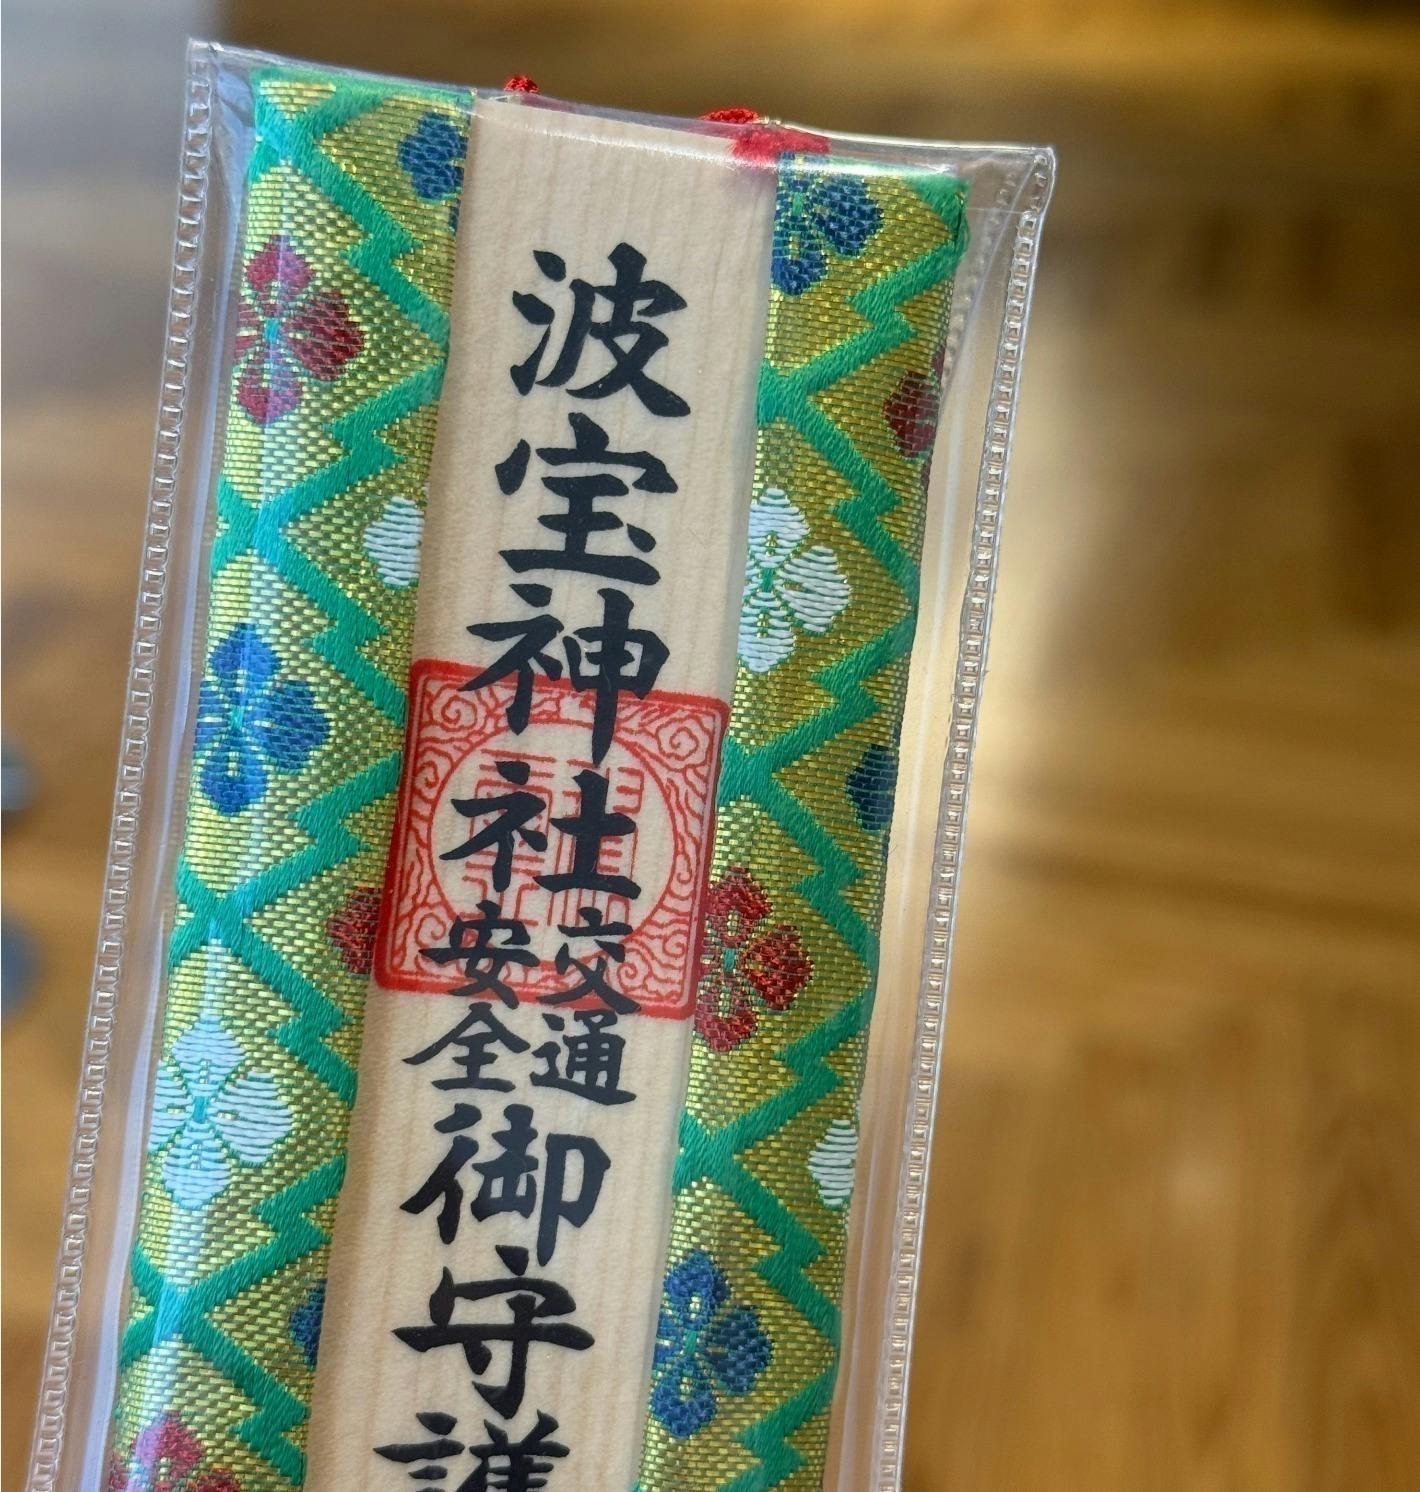 波宝神社
交通
安全
御守護